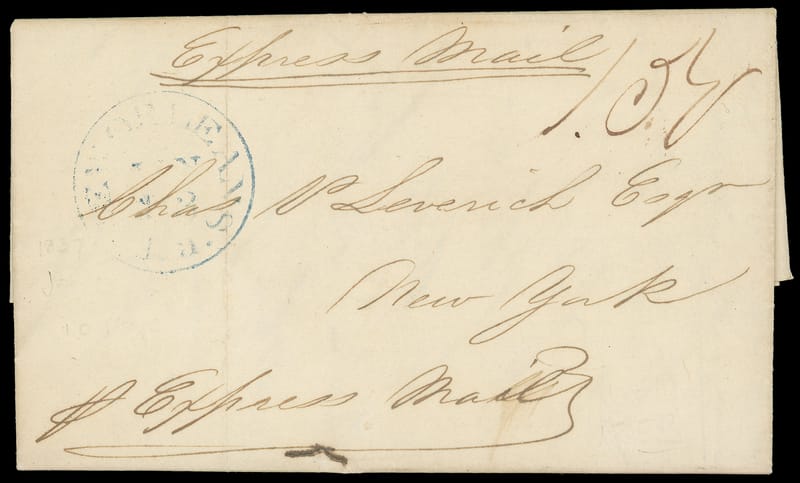 Express Mail
1.50
NEW ORLEANS
JAN
La.
Chas P Leverich Esqr
New York
1837
p Express Mail